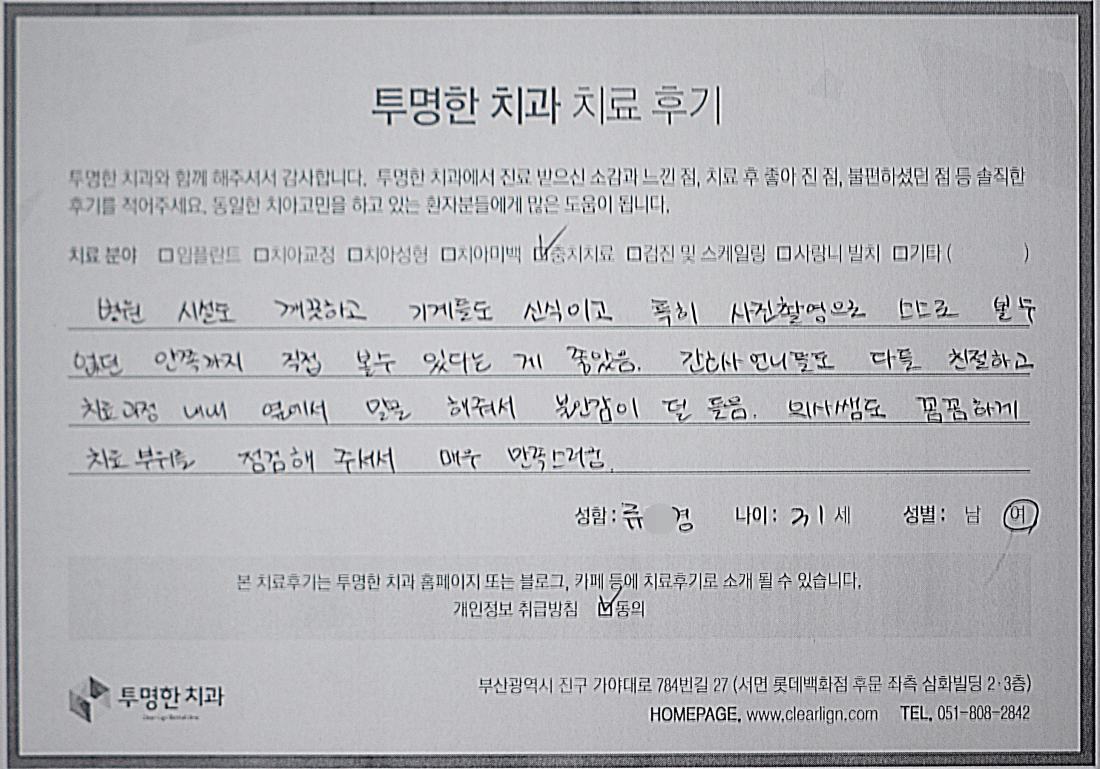 투명한 치과 치료 후기
투명한 치과와 함께 해주셔서 감사합니다. 투명한 치과에서 진료 받으신 소감과 느낀 점, 치료 후 좋아 진 점, 불편하셨던 점 등 솔직한
후기를 적어주세요. 동일한 치아고민을 하고 있는 환자분들에게 많은 도움이 됩니다.
치료 분야 □임플란트 □치아교정 □치아성형 □치아미백 ☑충치치료 □검진 및 스케일링 □사랑니 발치 □기타 ( )
병원 시설도 깨끗하고 기계들도 신식이고 특히 사진촬영으로 볼수
없던 안쪽까지 직접 볼수 있다는 게 좋았음. 간호사 언니들도 다들 친절하고
치료과정 내내 옆에서 말을 해줘서 불안감이 덜 들음. 의사쌤도 꼼꼼하게
치료 부위를 점검해 주셔서 매우 만족스러움.
성함: 류 경 나이: 31 세 성별: 남 여
본 치료후기는 투명한 치과 홈페이지 또는 블로그, 카페 등에 치료후기로 소개 될 수 있습니다.
개인정보 취급방침 ☑동의
투명한 치과
부산광역시 진구 가야대로 784번길 27 (서면 롯데백화점 후문 좌측 삼화빌딩 2·3층)
HOMEPAGE. www.clearlign.com TEL. 051-808-2842